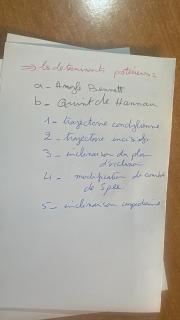 ⇒ les determinants posterieurs =
a- Angle Bennett
b- Quint de Hannau
1- trajectoire condylienne
2- trajectoire incisive
3- inclinaison du plan
d'occlusion
4- modification de courbe
de Spee
5- inclinaison cuspidienne